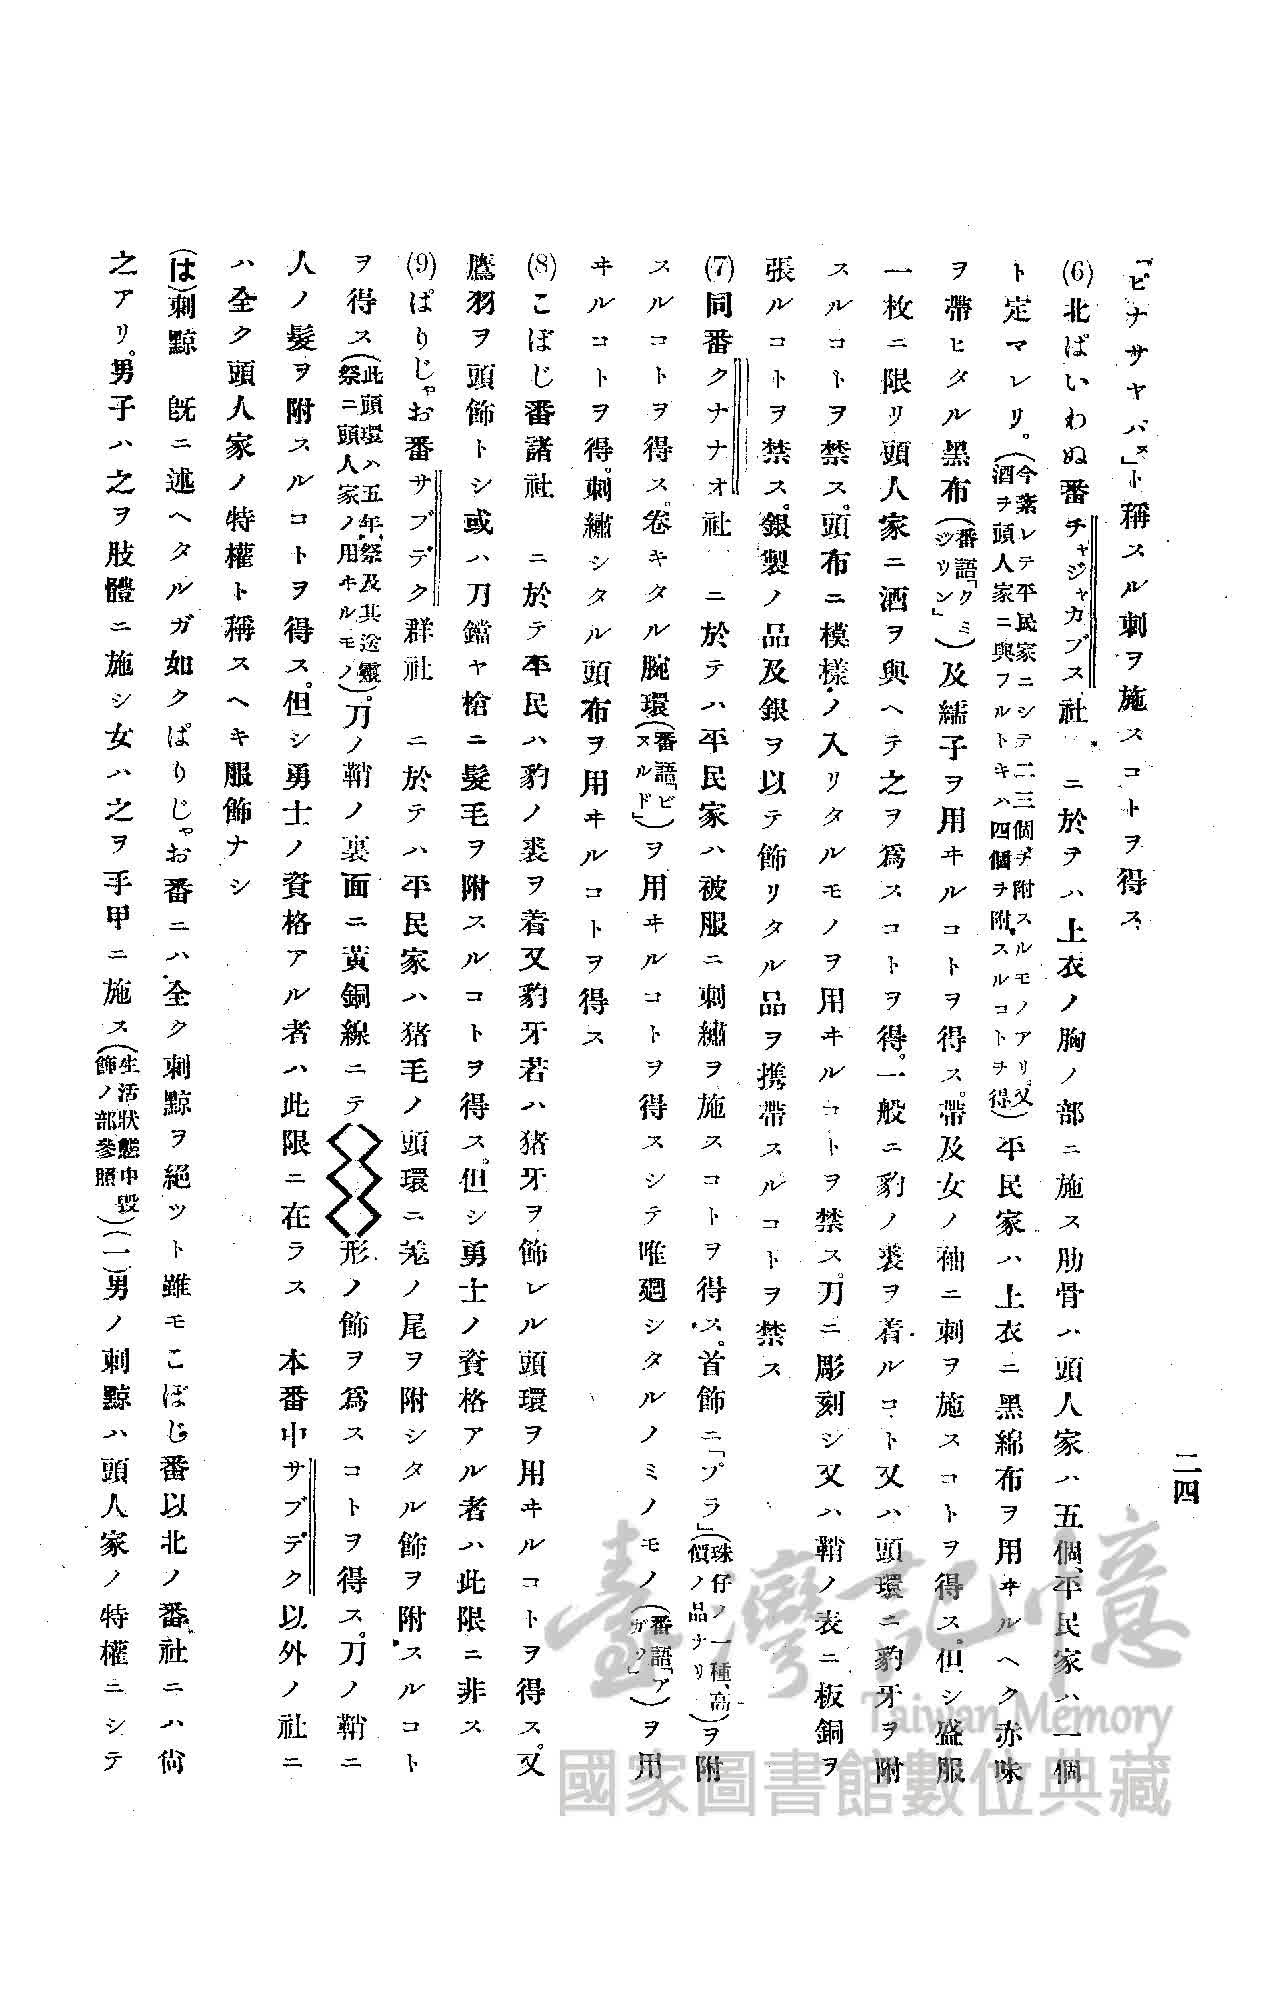 二四
「ピナサヤバㇴ」ト稱スル刺ヲ施スコトヲ得ス
(6)北ばいわぬ番チャジャカブス社　ニ於テハ上衣ノ胸ノ部ニ施ス肋骨ハ頭人家ハ五個、平民家ハ一個
ト定マレリ。(今紊レテ平民家ニシテ二三個ヲ附スルモノアリ又酒ヲ頭人家ニ與フルトキハ四個ヲ附スルコトヲ得)平民家ハ上衣ニ黑綿布ヲ用ヰルヘク赤味
ヲ帶ヒタル黑布(番語「クミジリン」)及繻子ヲ用ヰルコトヲ得ス。帶及女ノ袖ニ刺ヲ施スコトヲ得ス。但シ盛服
一枚ニ限リ頭人家ニ酒ヲ與ヘテ之ヲ爲スコトヲ得。一般ニ豹ノ裘ヲ着ルコト又ハ頭環ニ豹牙ヲ附
スルコトヲ禁ス。頭布ニ模樣ノ入リタルモノヲ用ヰルコトヲ禁ス。刀ニ彫刻シ又ハ鞘ノ表ニ板銅ヲ
張ルコトヲ禁ス。銀製ノ品及銀ヲ以テ飾リタル品ヲ携帶スルコトヲ禁ス
(7)同番クナナオ社　ニ於テハ平民家ハ被服ニ刺繡ヲ施スコトヲ得ス。首飾ニ「プラ」(珠仔ノ一種、高價ノ品ナリ)ヲ附
スルコトヲ得ス。卷キタル腕環(番語「ビヌルド」)ヲ用ヰルコトヲ得スシテ唯廻シタルノミノモノ(番語「アガツ」)ヲ用
ヰルコトヲ得。刺繡シタル頭布ヲ用ヰルコトヲ得ス
(8)こぼじ番諸社　ニ於テ平民ハ豹ノ裘ヲ着又豹牙若ハ猪牙ヲ飾レル頭環ヲ用ヰルコトヲ得ス。又
鷹羽ヲ頭飾トシ或ハ刀鐺ヤ槍ニ髮毛ヲ附スルコトヲ得ス。但シ勇士ノ資格アル者ハ此限ニ非ス
(9)ぱりじゃお番サブデク群社　ニ於テハ平民家ハ猪毛ノ頭環ニ羗ノ尾ヲ附シタル飾ヲ附スルコト
ヲ得ス(此頭環ハ五年祭及其送靈祭ニ頭人家ノ用ヰルモノ)。刀ノ鞘ノ裏面ニ黃銅線ニテ形ノ飾ヲ爲スコトヲ得ス。刀ノ鞘ニ
人ノ髮ヲ附スルコトヲ得ス。但シ勇士ノ資格アル者ハ此限ニ在ラス　本番中サブデク以外ノ社ニ
ハ全ク頭人家ノ特權ト稱スヘキ服飾ナシ
(は)刺黥　旣ニ述ヘタルガ如クぱりじゃお番ニハ全ク刺黥ヲ絕ツト雖モこぼじ番以北ノ番社ニハ尙
之アリ。男子ハ之ヲ肢體ニ施シ女ハ之ヲ手甲ニ施ス(生活狀態中毀飾ノ部參照)(一)男ノ刺黥ハ頭人家ノ特權ニシテ
臺灣記憶
Taiwan Memory
國家圖書館數位典藏